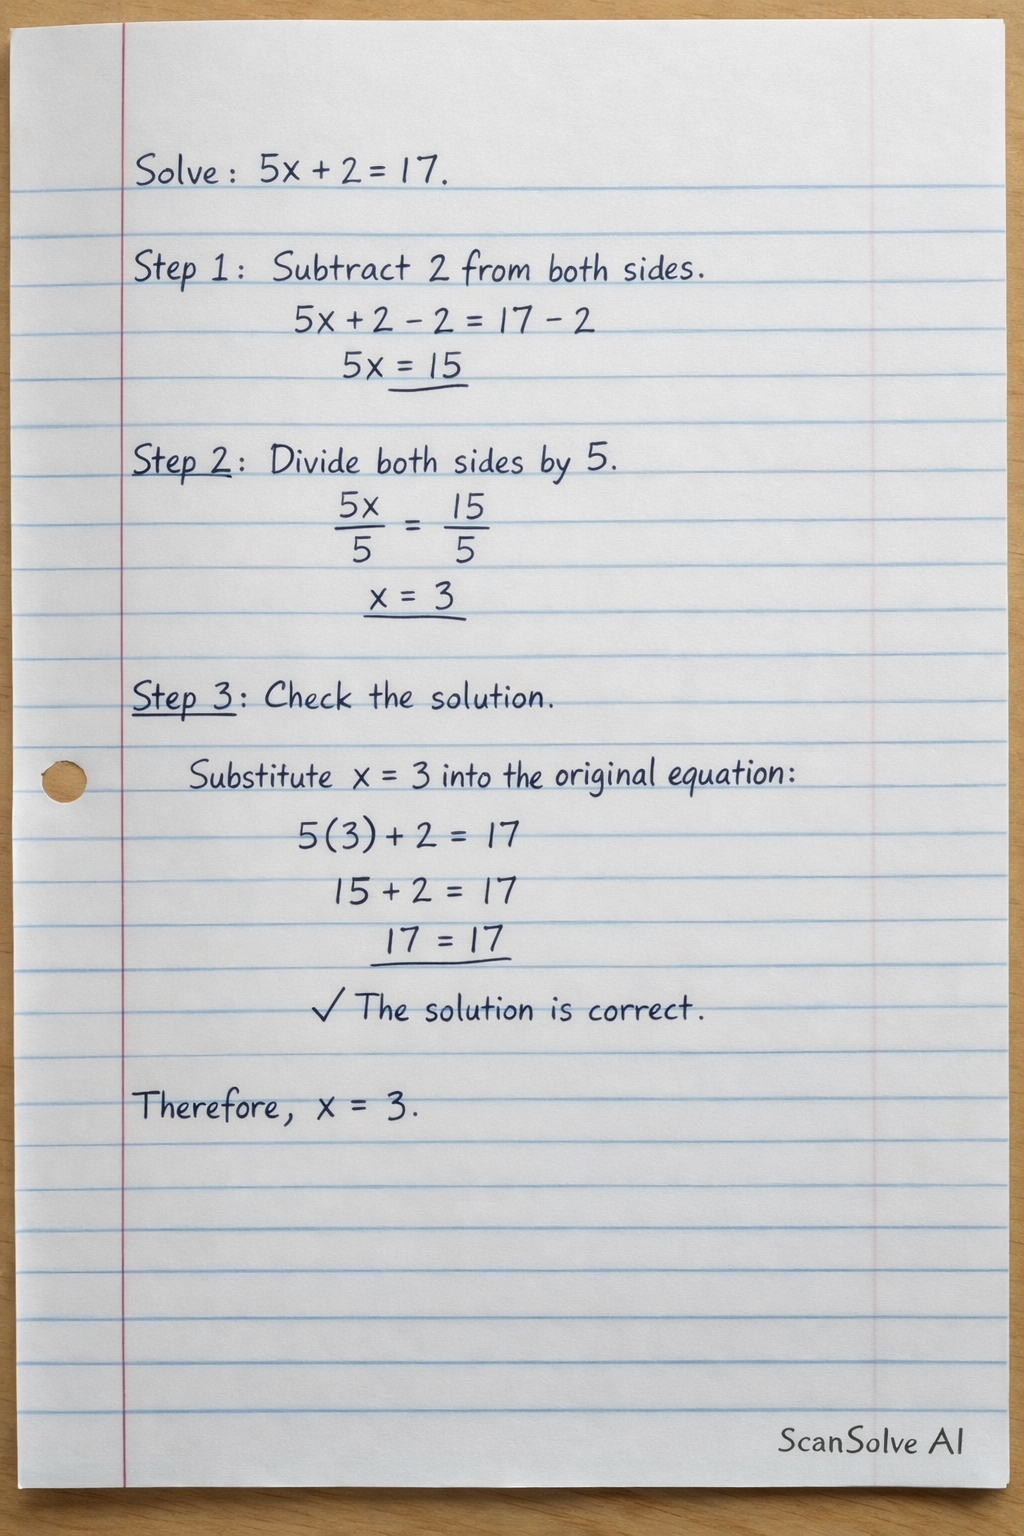 Solve: 5x + 2 = 17.
Step 1: Subtract 2 from both sides.
5x + 2 - 2 = 17 - 2
5x = 15
Step 2: Divide both sides by 5.
5x/5 = 15/5
x = 3
Step 3: Check the solution.
Substitute x = 3 into the original equation:
5(3) + 2 = 17
15 + 2 = 17
17 = 17
✓ The solution is correct.
Therefore, x = 3.
ScanSolve AI